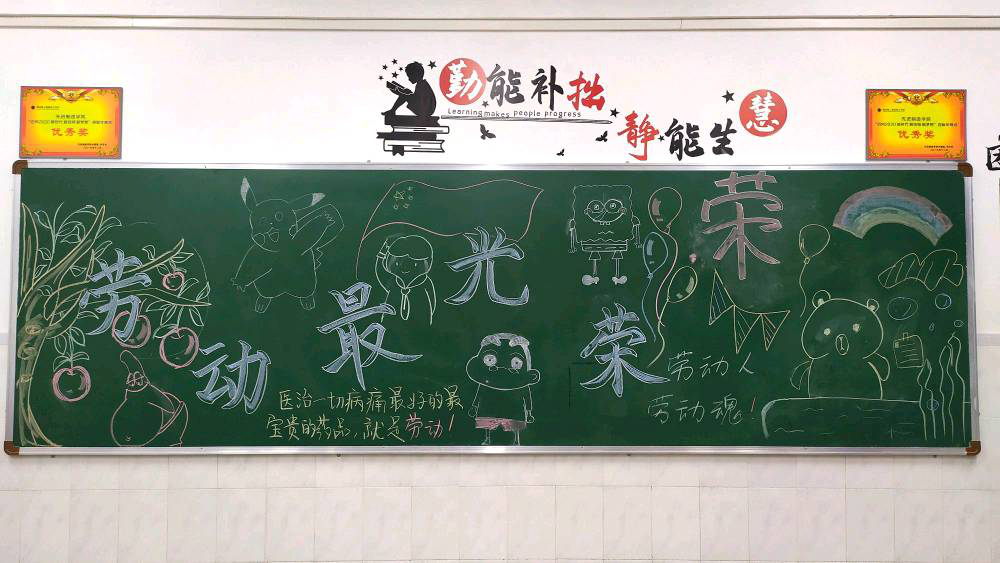 勤能补拙
Learning makes people progress
静能生慧
优秀奖
优秀奖
劳动最光荣
荣
医治一切病痛最好的最
宝贵的药品，就是劳动！
劳动人
劳动魂！